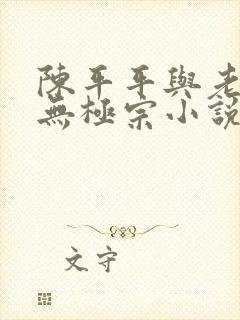 陳平平與老
無極宗小說
文守